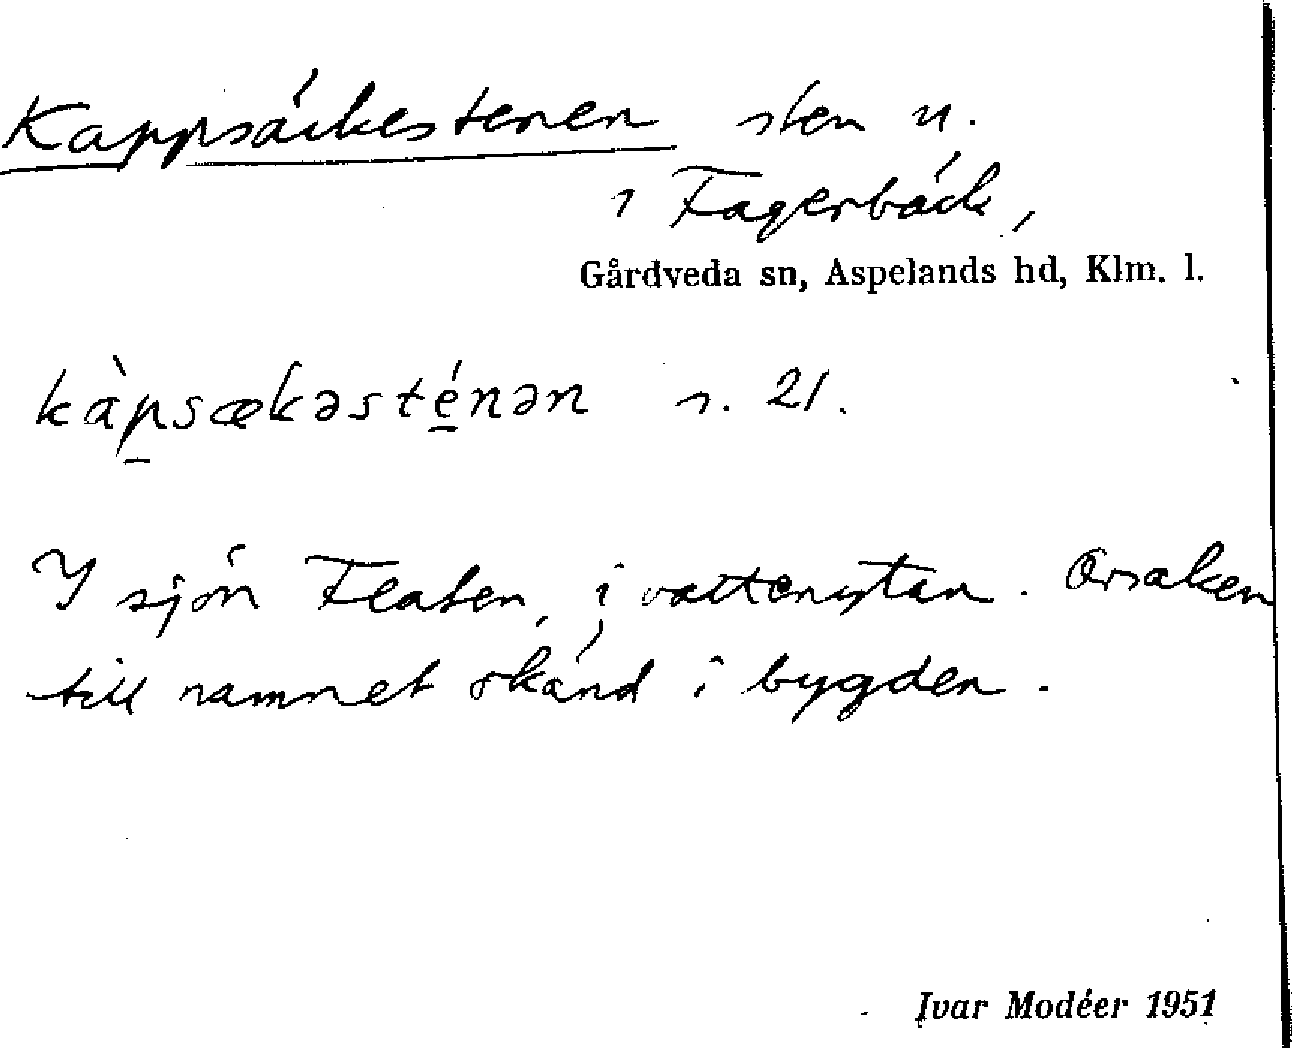 Kappsäckestenen sten n.
i Fagerbäck,
Gårdveda sn, Aspelands hd, Klm. l.
kàpsækəsténən s. 21.
I sjön Flaten, i vattenytan. Orsaken
till namnet okänd i bygden.
Ivar Modéer 1951